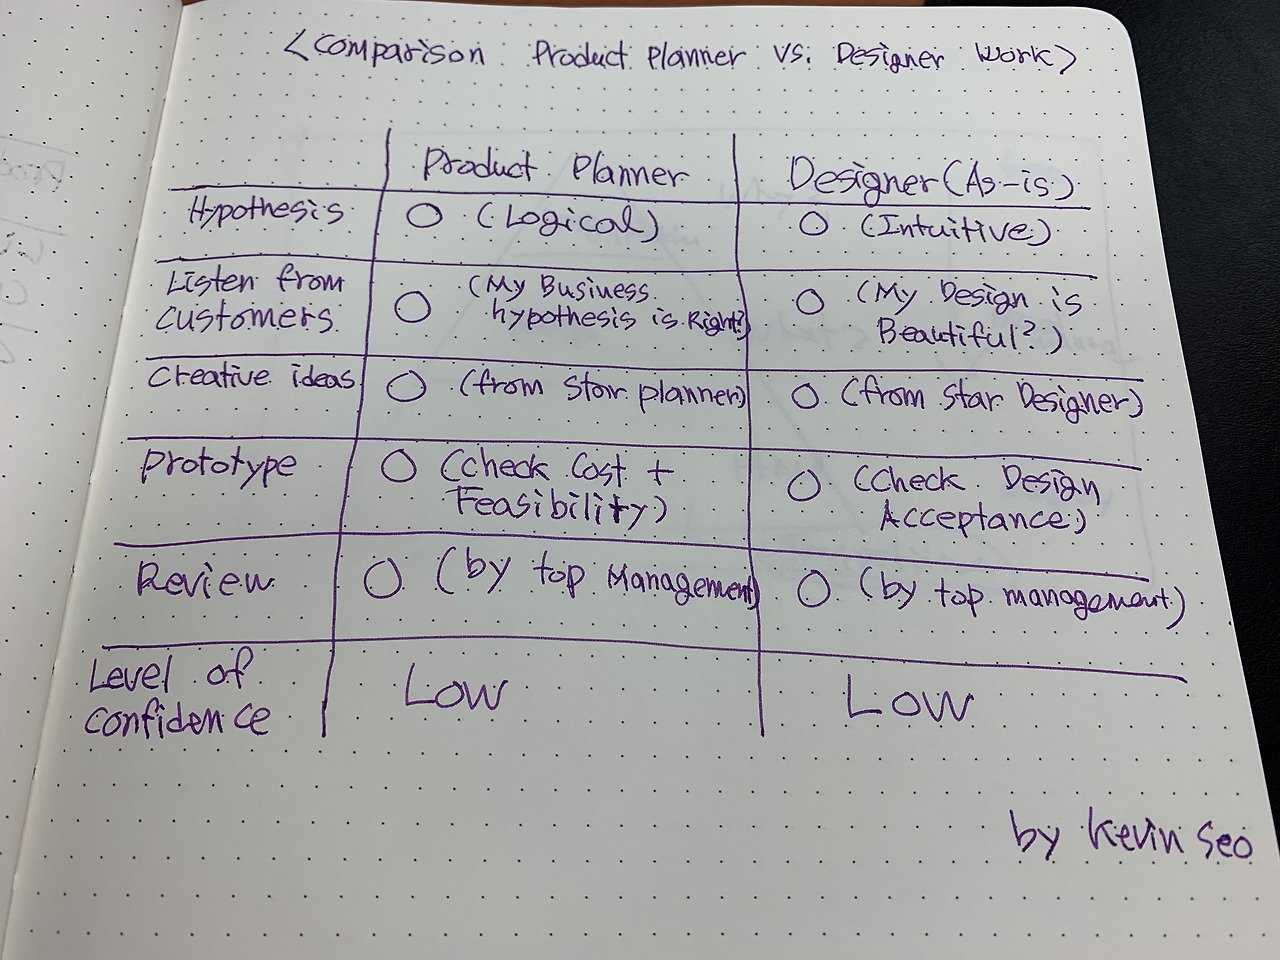 <Comparison: Product Planner vs. Designer Work>
Product Planner Designer (As-is)
Hypothesis ○ (Logical) ○ (Intuitive)
Listen from customers ○ (My Business hypothesis is Right?) ○ (My Design is Beautiful?)
Creative ideas ○ (from Star planner) ○ (from Star Designer)
Prototype ○ (Check Cost + Feasibility) ○ (Check Design Acceptance)
Review ○ (by top Management) ○ (by top management)
Level of confidence Low Low
by Kevin Seo